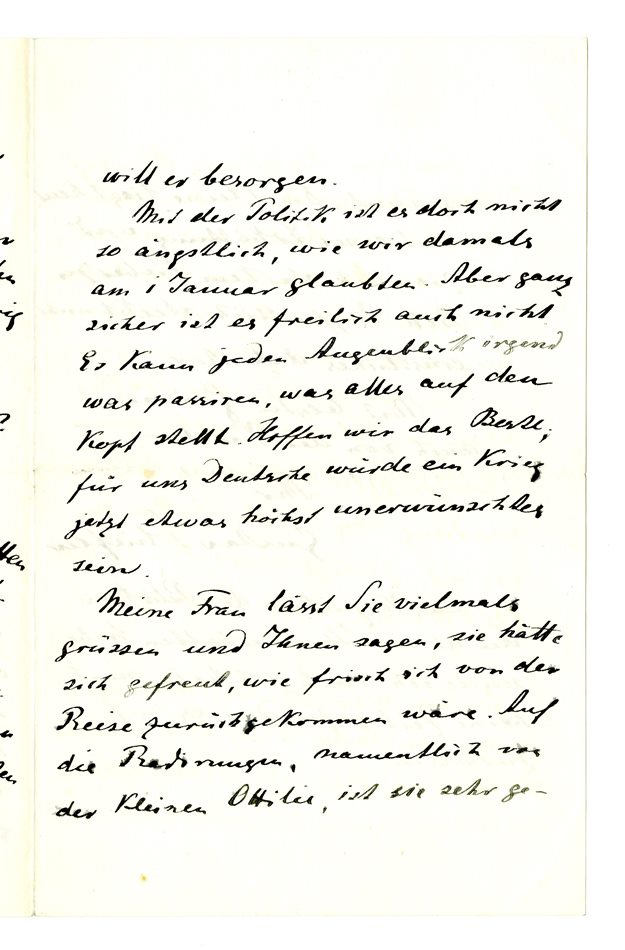 will er besorgen.
Mit der Politik ist es doch nicht
so ängstlich, wie wir damals
am 1 Januar glaubten. Aber ganz
sicher ist es freilich auch nicht.
Es kann jeden Augenblick irgend
was passiren, was alles auf den
Kopf stellt. Hoffen wir das Beste;
für uns Deutsche würde ein Krieg
jetzt etwas höchst unerwünschtes
sein.
Meine Frau lässt Sie vielmals
grüssen und Ihnen sagen, sie hätte
sich gefreut, wie frisch ich von der
Reise zurückgekommen wäre. Auf
die Radirungen, namentlich von
der kleinen Ottilie, ist sie sehr ge-